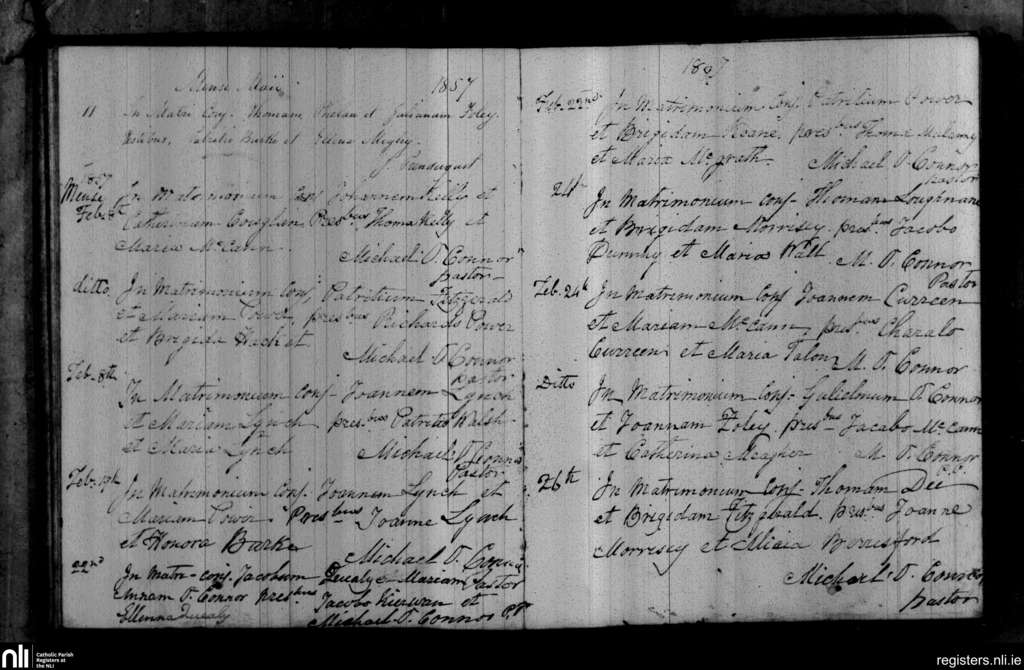 Mense Maii 1857
11 In Matri Conj. Thomam Phelan et Julianam Foley.
Testibus, Patritio Burke et
1857
Mense In Matrimonium Conj Johannem Kelly et
Feb. 8th Catherinam Coughlan, Presbus Thoma Kelly et
Maria McCann.
Michael O. Connor
pastor
ditto, In Matrimonium Conj Patritium Fitzgerald
et Mariam Power, presbus Richardo Power
et Brigida Hacket
Michael O Connor
Pastor
Feb. 8th
In Matrimonium Conj- Joannem Lynch
et Mariam Lynch presbus Patritio Walsh
et Maria Lynch
Michael O Connor
Pastor
Feb. 19th In Matrimonium Conj. Joannem Lynch et
Mariam Power. Presbus Joanne Lynch
et Honora Barker
Michael O. Connor
Pastor
22nd In Matri- conj. Jacobum Quealy e Mariam
Annam O. Connor presbus Jacobo Kierwan et
Ellenna Quealy Michael O. Connor P.P.
1857
Feb. 22nd In Matrimonium Conj. Patritium Power
et Brigidam Keane, presbus Thoma
et Maria Mcgrath- Michael O Connor
pastor
24th In Matrimonium conj- Thomam Loughnane
et Brigidam Morrisey- presbus Jacobo
Dunnhy et Maria Wall M. O. Connor
Pastor
Feb. 24th In Matrimonium Conj Joannem Curreen
et Mariam McCann, presbus Charalo
Curreen et Maria Talon
M. O. Connor
Ditto In Matrimonium Conj- Gulielmum O. Connor
et Joannam Foley presbus Jacobo McCann
et Catherina Meagher M. O. Connor
P.P.
26th In Matrimonium Conj- Thomam Dee
et Brigidam Fitzgerald. presbus Joanne
Morrisey et Maria Berresford
Michael O. Connor
pastor
nli Catholic Parish
Registers at
the NLI
registers.nli.ie